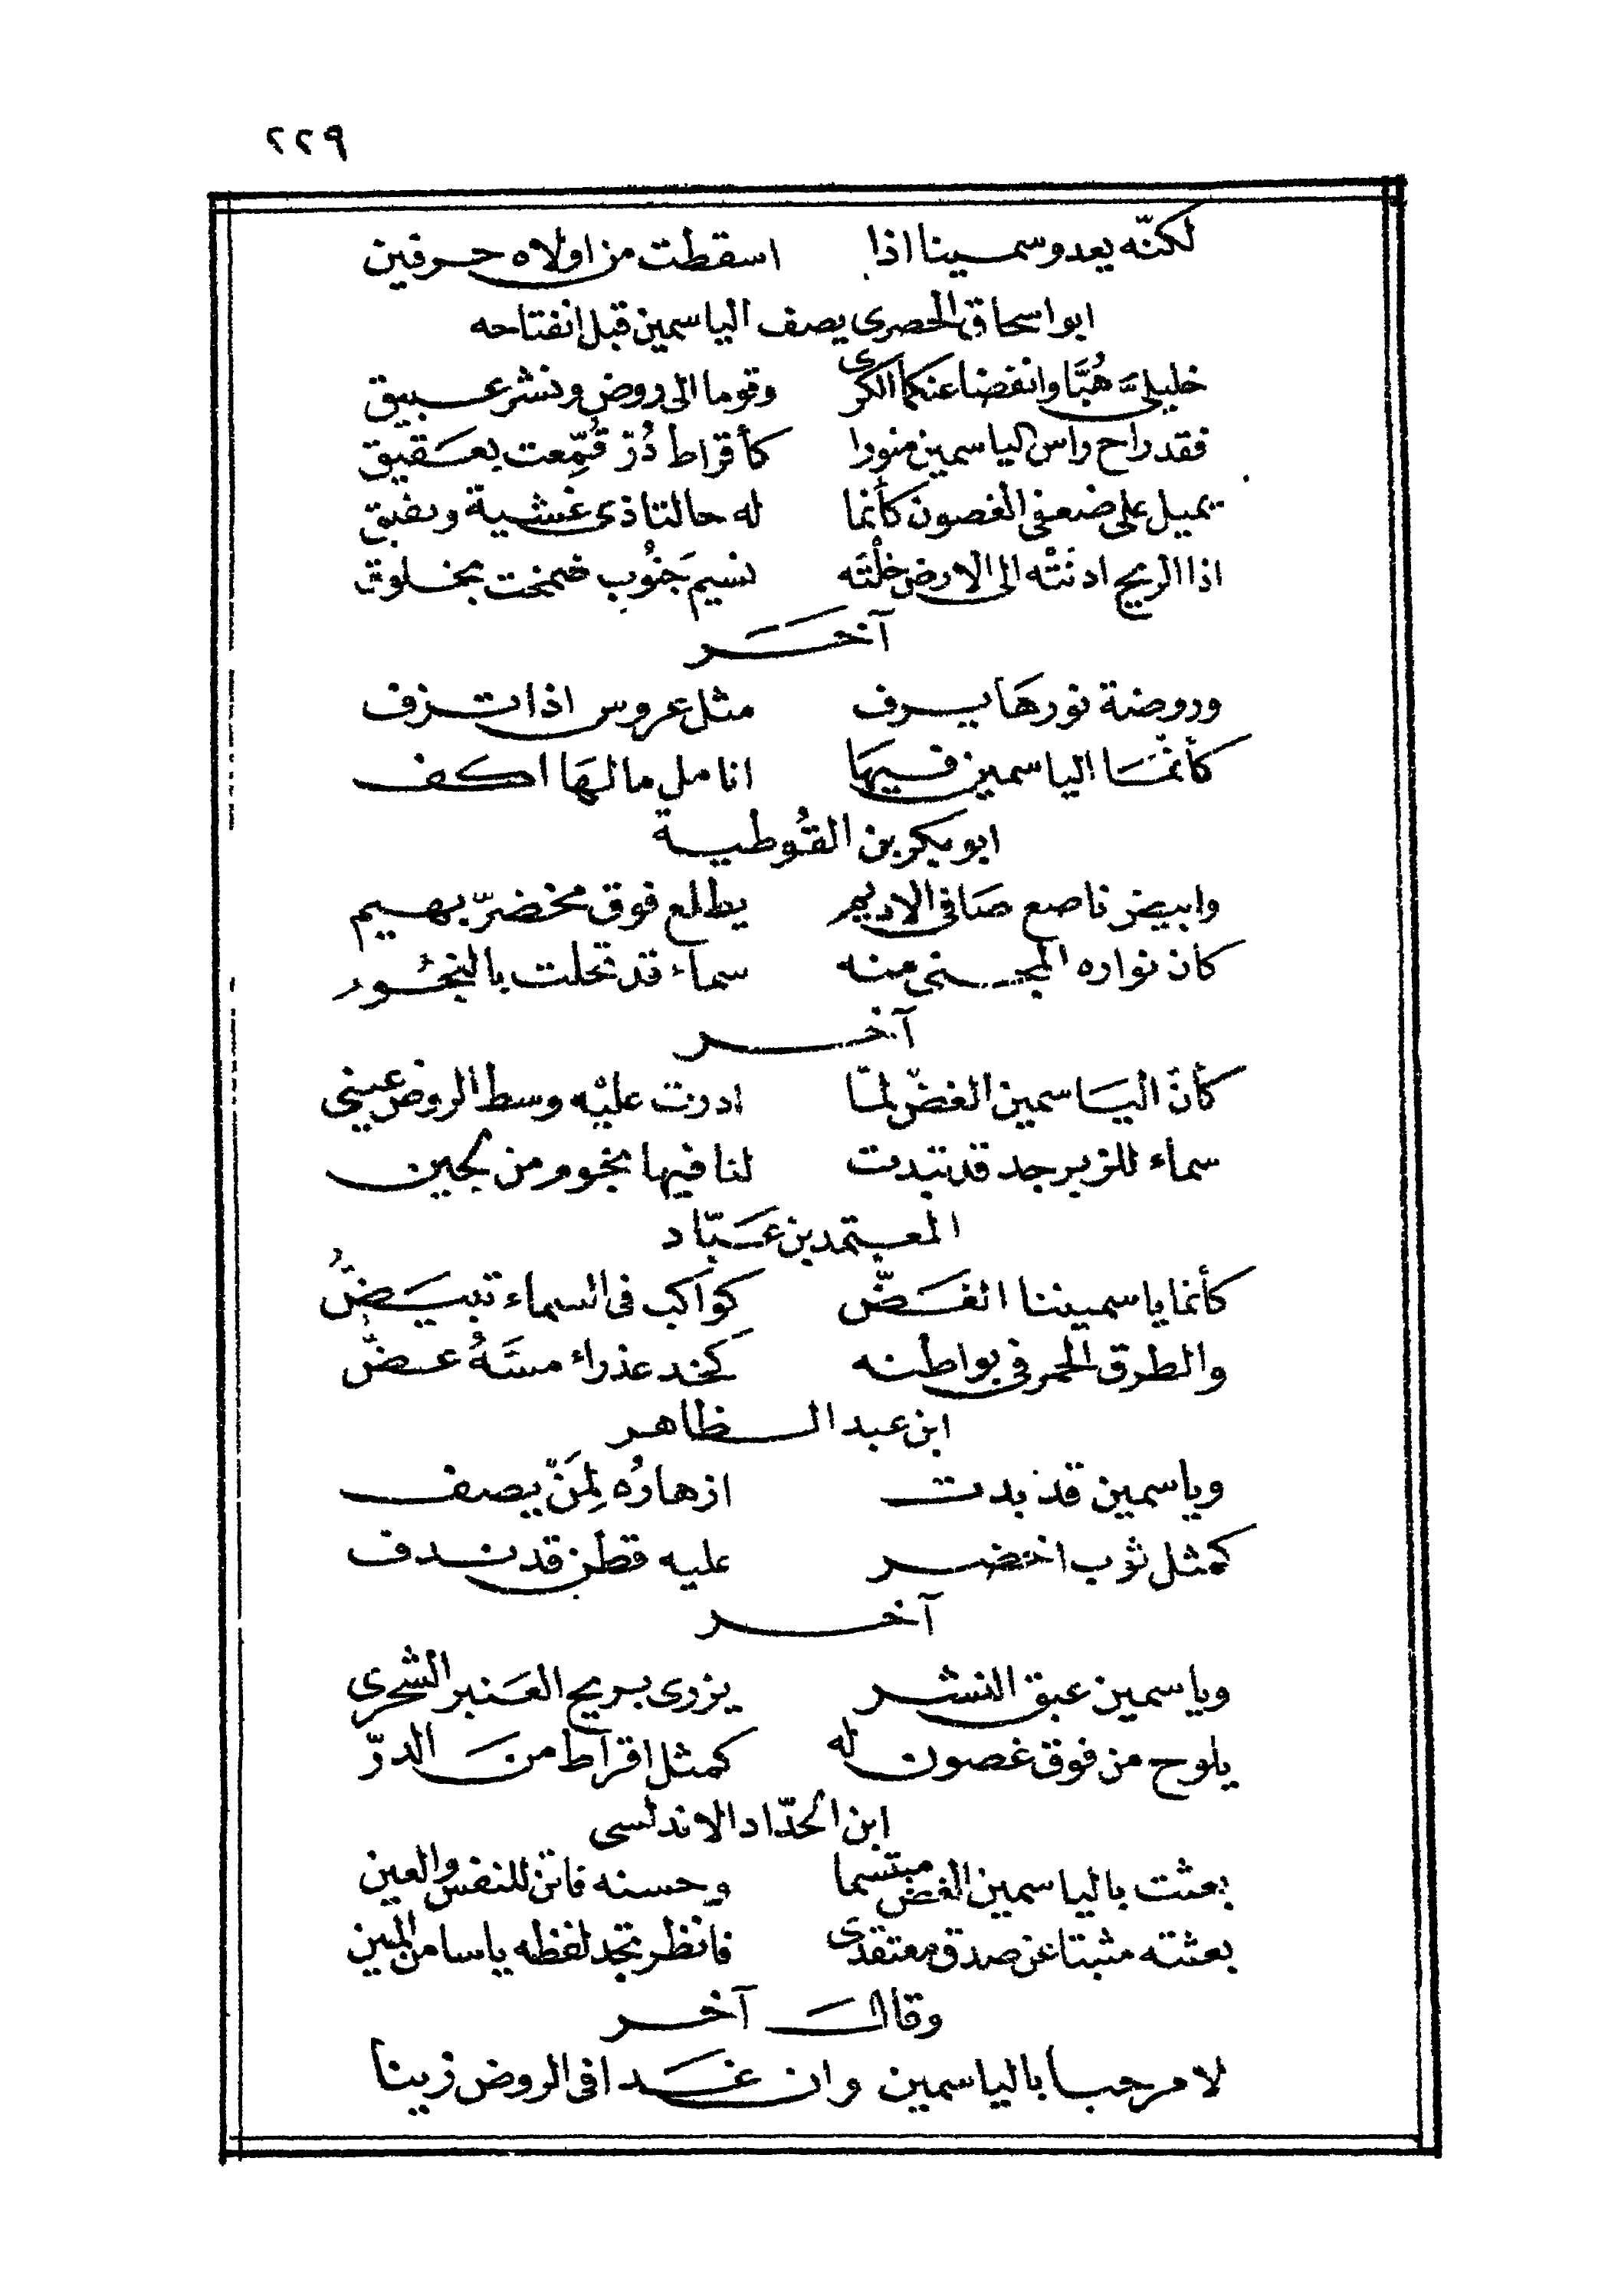 ٢٢٩
لكنّه يعدو سمينا اذا اسقطت من اولاه حرفين
ابو اسحاق الحصرى يصف الياسمين قبل انفتاحه
خليلىَّ هُبَّا وانفضا عنكما الكرى وقوما الى روض ونشر عبيق
فقد راح راس الياسمين منورا كأقراط دُرّ قُمِّعت بعَقيق
يميل على ضعفى الغصون كأنما له حالتا ذى غشية ومفيق
اذا الريح ادنَتْه الى الارض خلْتَه نسيم جَنُوب ضمخت بخلوق
آخَر
وروضة نورها يرف مثل عروس اذا تزف
كأنما الياسمين فيها انامل مالها اكف
ابو بكر بن القُوطية
وابيض ناصع صافى الاديم يطلع فوق مخضرّ بهيم
كان نواره المجنى منه سماء قد تحلت بالنجُوم
آخر
كأنّ الياسمين الغضّ لمّا ادرت عليْه وسط الروض عينى
سماء للزبرجد قد تبدت لنا فيها نجوم من لجين
المعتمد بن عَبّاد
كأنما ياسميننا الغَضّ كواكب فى السماء تبيَضُّ
والطرق الحمر فى بواطنه كخد عذراء مسَّهُ عضّ
ابن عبد الظاهر
وياسمين قد بدت ازهارُه لِمَنْ يصف
كمثل ثوب اخضر عليه قطن قد ندف
آخر
وياسمين عبق النشر يزرى بريح العَنبر الشحرى
يلوح من فوق غصون له كمثل اقراط من الدرّ
ابن الحدّاد الاندلسى
بعثت بالياسمين الغض مبتسما وحسنه فاتن للنفس والعين
بعثته مثبتا عن صدق معتقدى فانظر تجد لفظه ياسا من المين
وقال آخر
لا مرحبا بالياسمين وان غَدا فى الروض زينا